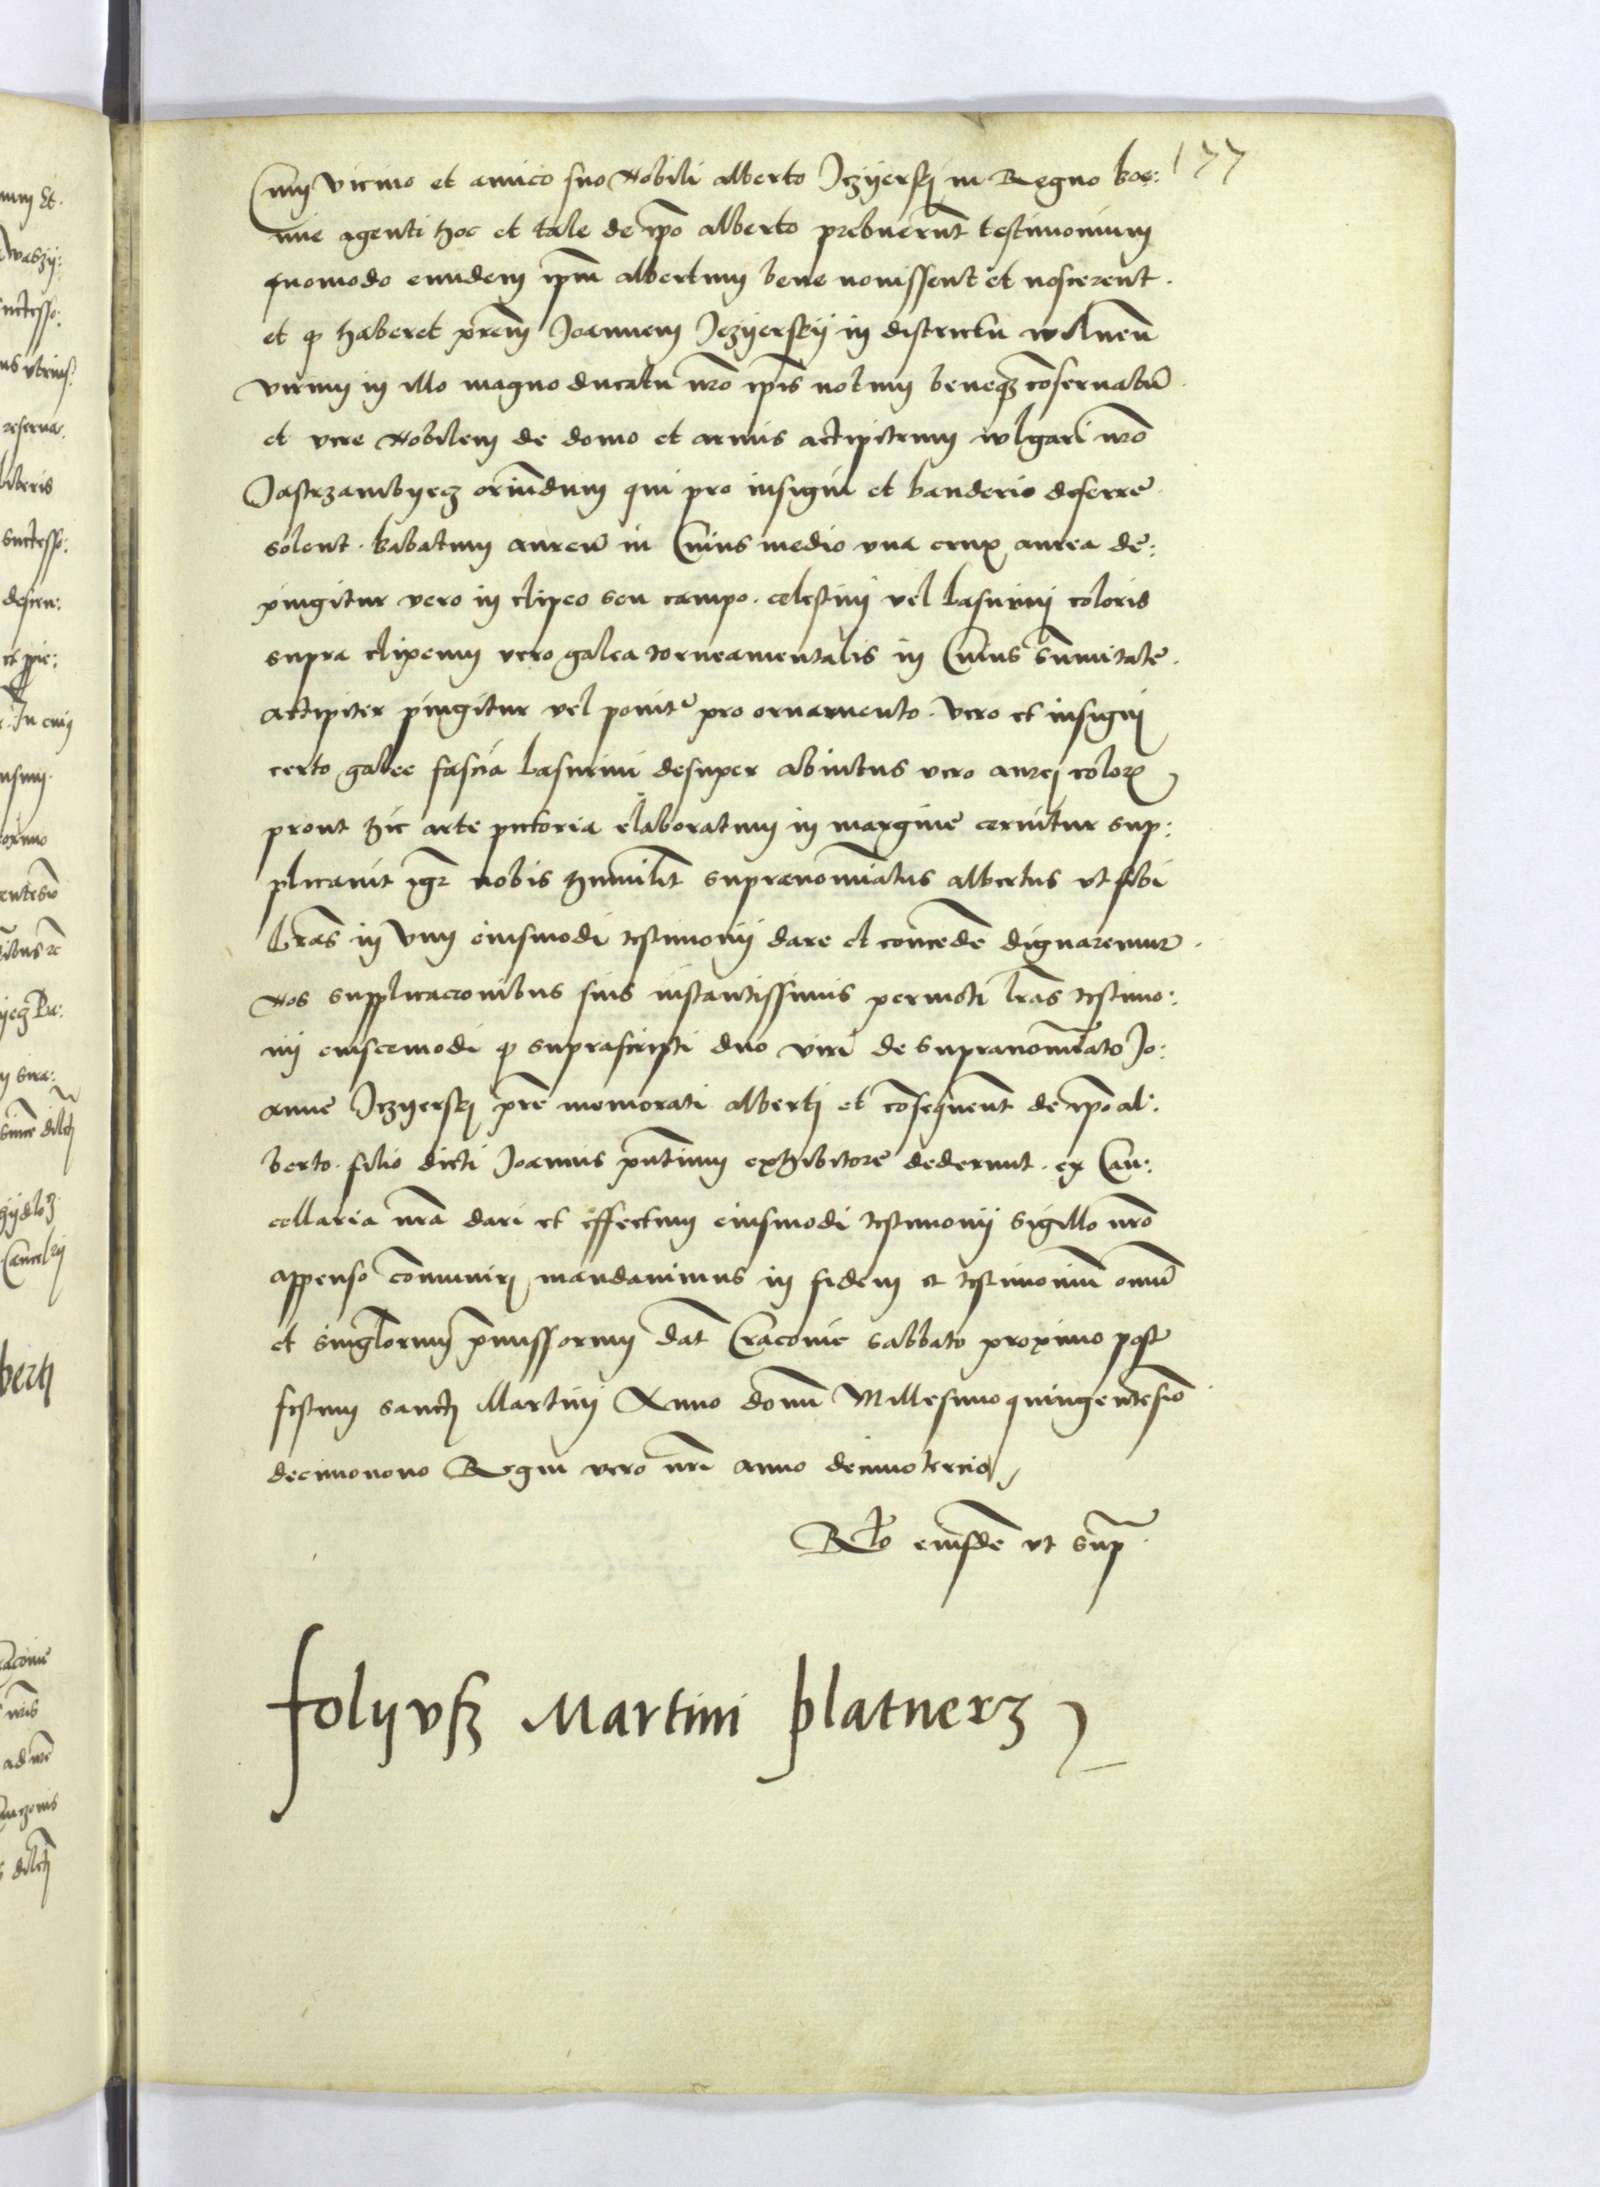 177
Cum vicino et amico suo Nobili alberto Jezyerskj in Regno boe:
mie agenti hoc et tale de ipo alberto prebuerunt testimonium
quomodo eundem ipm albertum bene novissent et noscerent.
et q haberet prem Joannem Jezyerskij in districtu wilnen
virum in illo magno ducatu nro ipis notum beneq conservatu
et vere Nobilem de domo et armis accipitrum wlgari nro
Jastrzambyecz oriundum qui pro insigni et banderio deferre
solent. babatum aureu in Cuius medio una crux aurea de:
pingitur vero in clipeo seu campo. celestini vel lasurini coloris
supra clipeum vero galea torneamentalis in Cuius summitate.
accipiter pingitur vel ponit pro ornamento. vero et insigni
certo galee fascia lasurini desuper abintus vero aurei color
prout hic arte pictoria elaboratum in margine cernitur sup:
plicavit igr nobis humilit supranominatus albertus ut sibi
lras in vim eiusmodi testimonii dare et concede dignaremur.
Nos supplicacionibus suis instantissimis permoti lras testimo:
nij eiuscemodi q suprascripti duo viri de supranominato Jo:
anne Jezyerskj pre memorati albertj et consequent de ipo al:
berto. filio dicti Joannis pntium exhibitore dederunt. ex Can:
cellaria nra dari et effectum eiusmodi testimonij sigillo nro
appenso comunirj mandavimus in fidem et testimonium omniu
et singlorum pmissorum dat Cracovie sabbato proximo post
festum sanctj Martini Anno domi Millesimo quingentesio
decimonono Regni vero nri anno decimotercio
Rlo eiusde ut sup
folyusz Martini platnerz